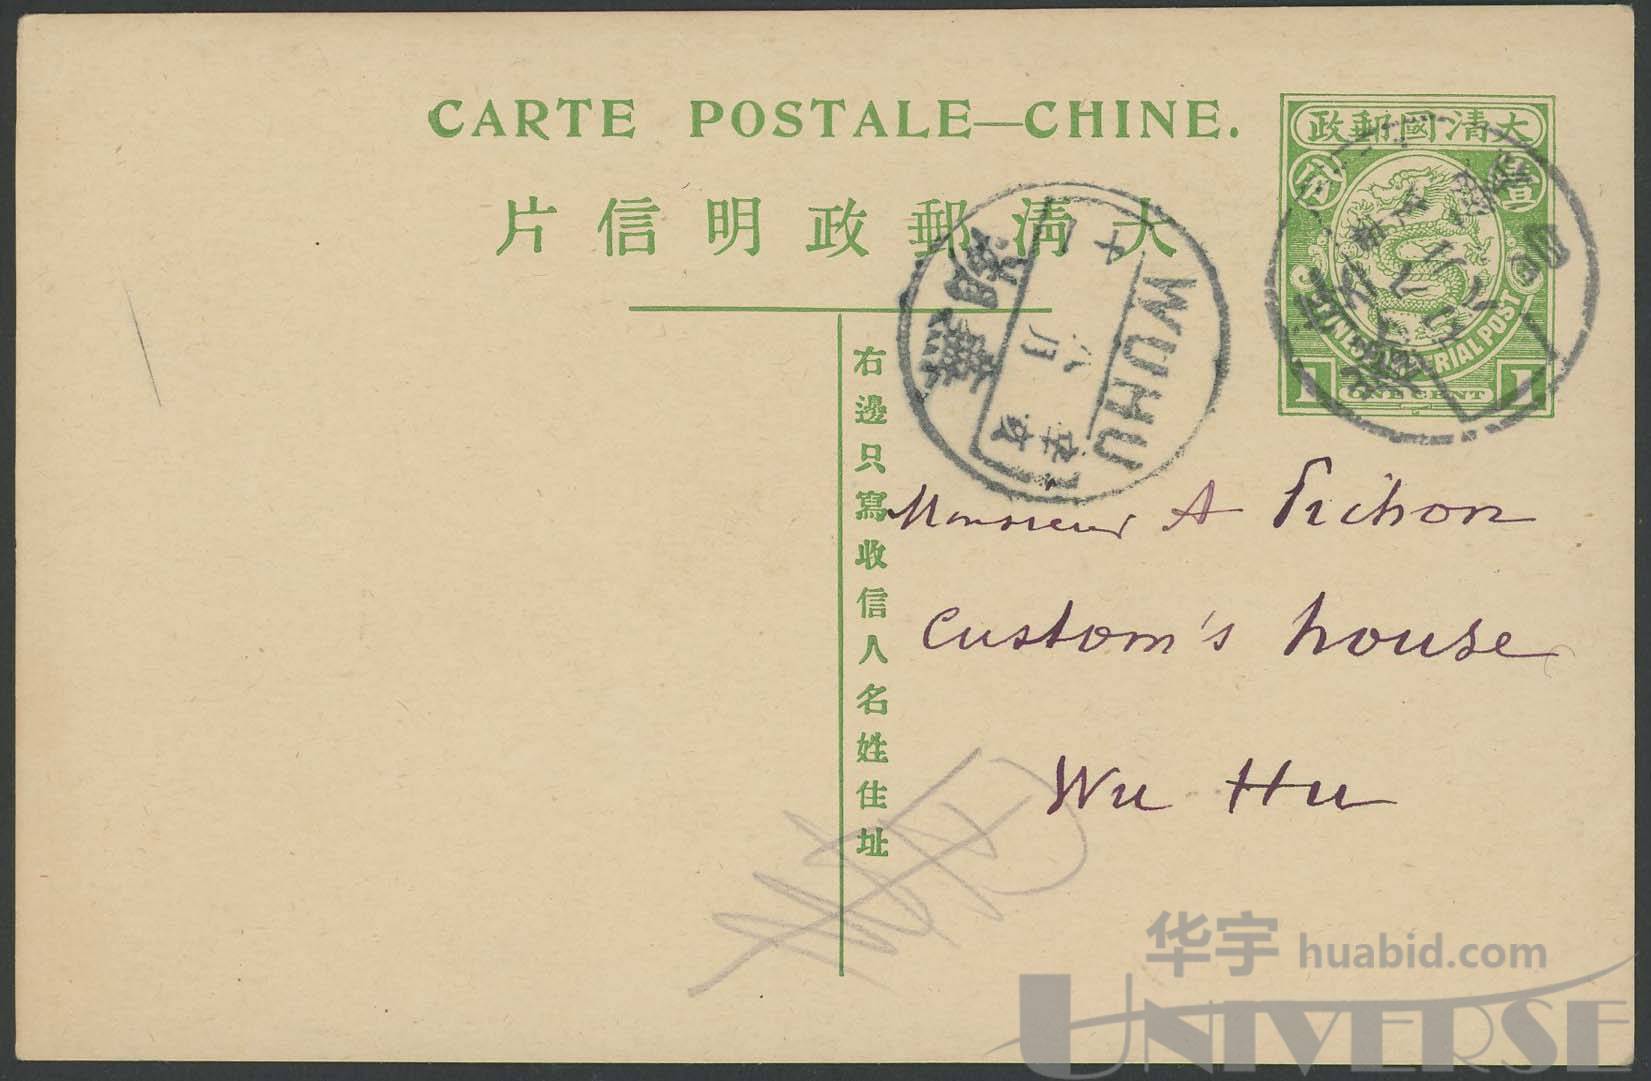 CARTE POSTALE—CHINE.
大清郵政明信片
大清國郵政
壹
分
CHINESE IMPERIAL POST
1 ONE CENT 1
WUHU
蕪湖
八月
右邊只寫收信人名姓住址
Monsieur A
Custom's house
Wu Hu
华宇 huabid.com
UNIVERSE